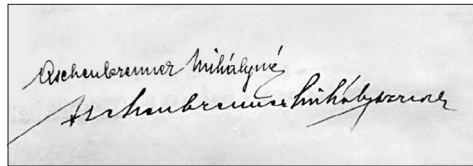 Aschenbrenner Mihályné
Aschenbrenner Mihály